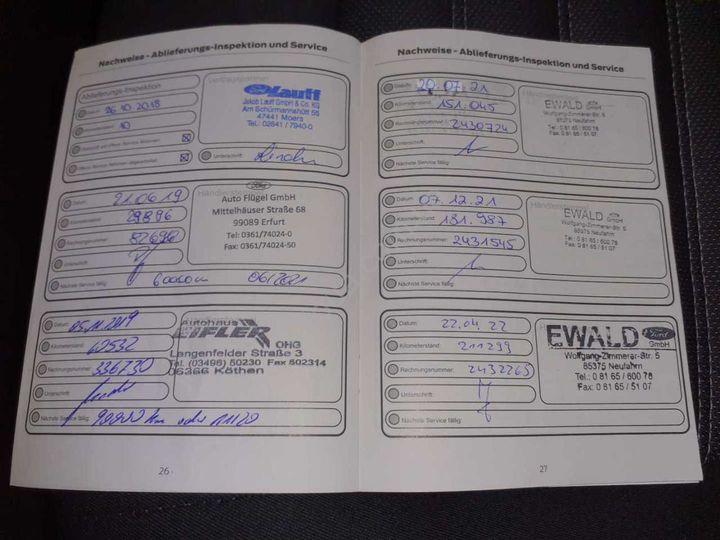 Nachweise - Ablieferungs-Inspektion und Service
Ablieferungs-Inspektion
Datum: 26 10 2018
10
Unterschrift:
Lauff
Jakob Lauff GmbH & Co. KG
Am Schürmannshütt 55
47441 Moers
Tel.: 02841 / 7940-0
Datum: 21.06.19
Kilometerstand: 29896
Rechnungsnummer:
Unterschrift:
Nächste Service fällig: 60000 06/2021
Ford
Auto Flügel GmbH
Mittelhäuser Straße 68
99089 Erfurt
Tel: 0361/74024-0
Fax: 0361/74024-50
Datum: 05.11.2019
Kilometerstand: 60532
Rechnungsnummer: 336730
Unterschrift:
Nächste Service fällig: 90000 km oder 11/20
Autohaus
EIFLER OHG
Langenfelder Straße 3
Tel. (03496) 50230 Fax 502314
06366 Köthen
26
Nachweise - Ablieferungs-Inspektion und Service
Datum: 20.07.21
Kilometerstand: 151.045
Rechnungsnummer: 2430724
Unterschrift:
Nächste Service fällig:
EWALD
Wolfgang-Zimmerer-Str. 5
85375 Neufahrn
Tel.: 0 81 65 / 600 78
Fax: 0 81 65 / 51 07
Datum: 07.12.21
Kilometerstand: 181.987
Rechnungsnummer: 2431545
Unterschrift:
Nächste Service fällig:
EWALD GmbH
Wolfgang-Zimmerer-Str. 5
85375 Neufahrn
Tel.: 0 81 65 / 600 78
Fax: 0 81 65 / 51 07
Datum: 22.04.22
Kilometerstand: 211299
Rechnungsnummer: 2432265
Unterschrift:
Nächste Service fällig:
EWALD Ford GmbH
Wolfgang-Zimmerer-Str. 5
85375 Neufahrn
Tel.: 0 81 65 / 600 78
Fax: 0 81 65 / 51 07
27